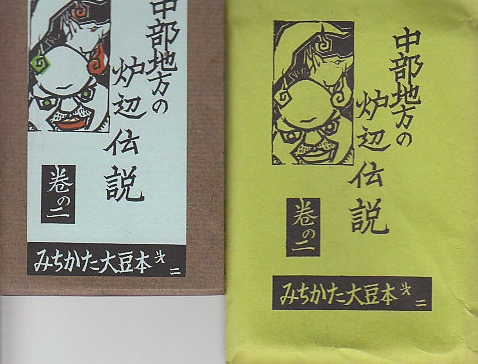 中部地方の
炉辺伝説
巻の二
みちかた大豆本 二
中部地方の
炉辺伝説
巻の二
みちかた大豆本 二